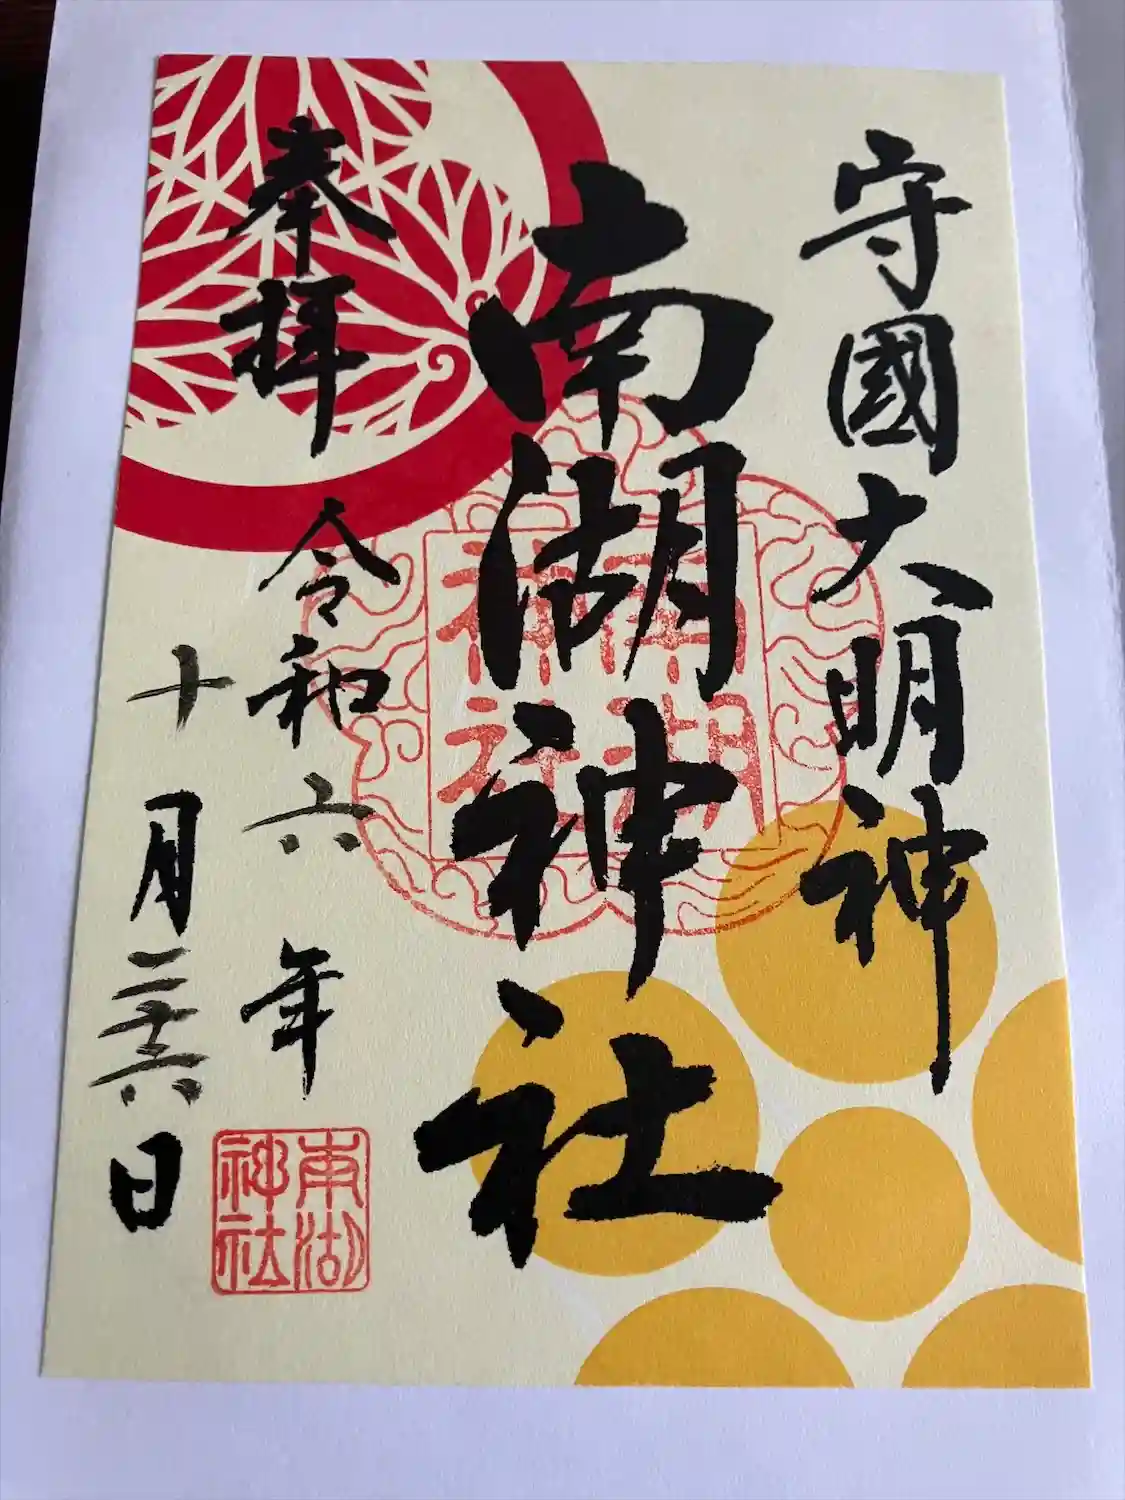 守國大明神
南湖神社
南湖神社
奉拝
令和六年
十月二十六日
南湖神社